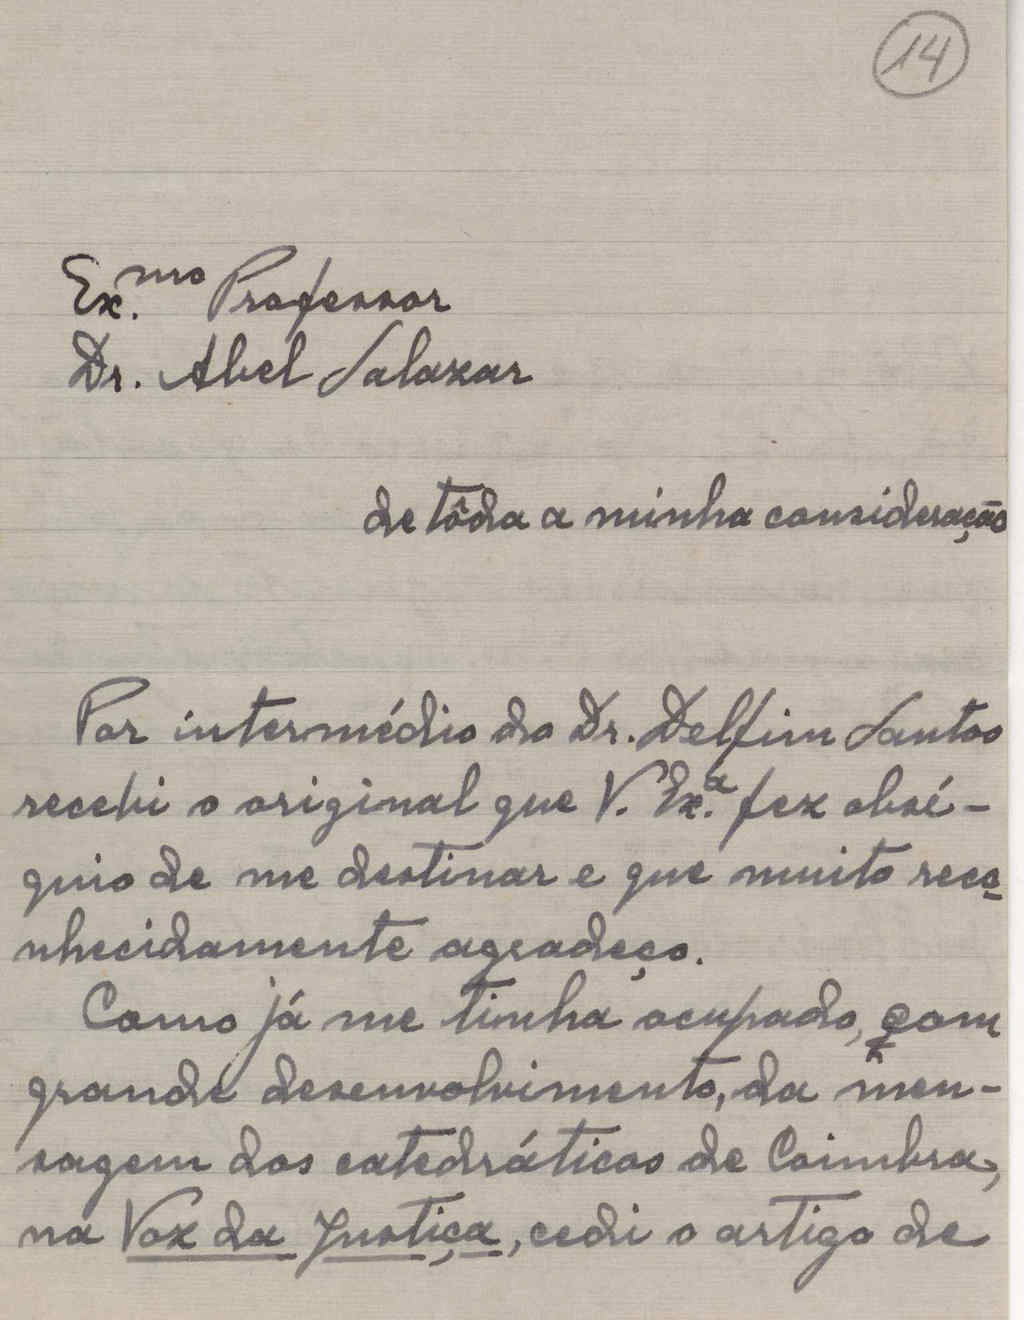 14
Ex.mo Professor
Dr. Abel Salazar
de tôda a minha consideração
Por intermédio do Dr. Delfim Santos
recebi o original que V. Ex.a fez obsé-
quio de me destinar e que muito reco-
nhecidamente agradeço.
Como já me tinha ocupado, com
grande desenvolvimento, da men-
sagem dos catedráticos de Coimbra,
na Voz da Justiça, cedi o artigo de